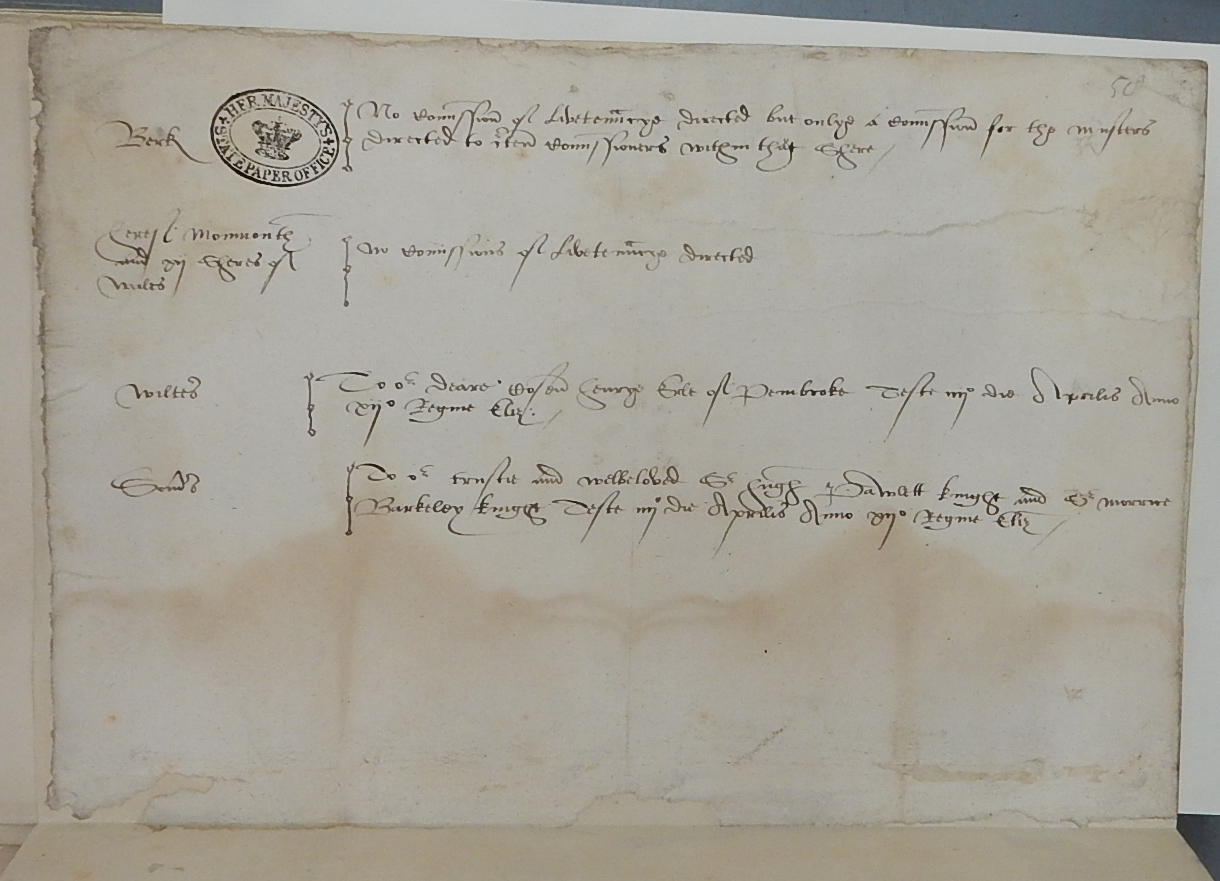 50
HER MAJESTY'S STATE PAPER OFFICE
Berk No Comission of Lieutenncye directed but onlye a Comission for the musters
directed to certen Comissioners within that Shere
Monmouth
and xij Sheres of
Wales
No Comissions of Lieutenncye directed
Wiltes To or deare Cosen Erle of Pembroke Teste iiijo die Aprilis Anno
xijo Regine Eliz.
To or trustie and welbeloved Sr Hugh Pawlett knight and Sr Morrice
Barkeley knight Teste iiijo die Aprilis Anno xijo Regine Eliz